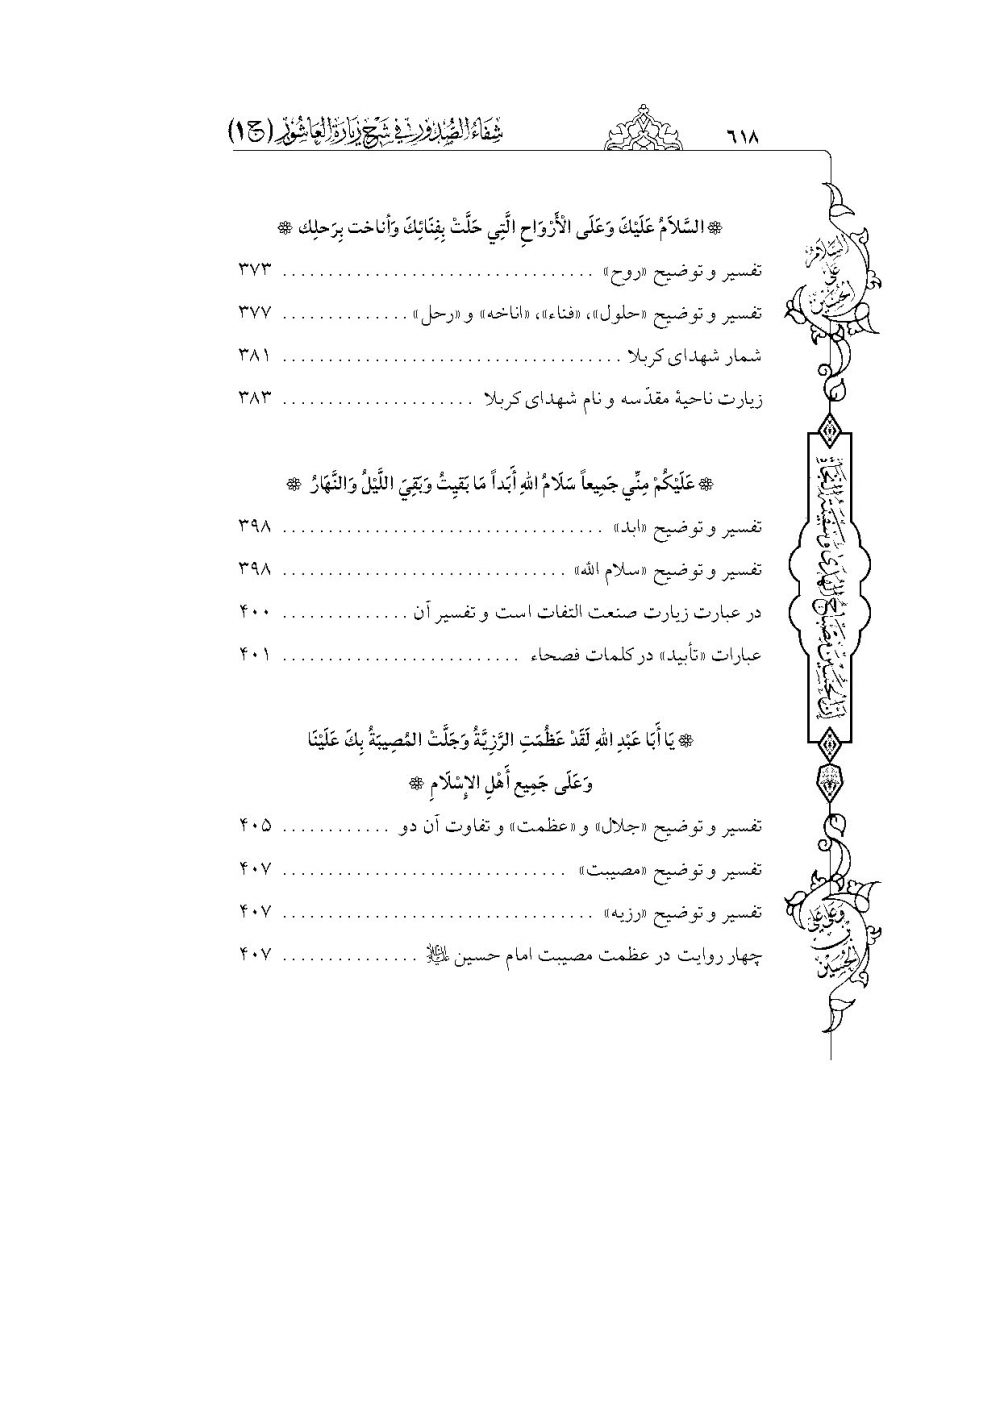 ٦١٨
شِفَاءُ الصُّدُورِ في شَرْحِ زِيَارَةِ العَاشُورِ (ج ١)
السَّلاَمُ عَلَيْكَ وَعَلَى الْأَرْوَاحِ الَّتِي حَلَّتْ بِفِنَائِكَ وَأناخت بِرَحلِك
تفسیر و توضیح «روح» . . . . . . . . . . . . . . . . . . . . . . . . . . . . . . . . . ۳۷۳
تفسیر و توضیح «حلول»، «فناء»، «اناخه» و «رحل» . . . . . . . . . . . . . . ۳۷۷
شمار شهدای کربلا . . . . . . . . . . . . . . . . . . . . . . . . . . . . . . . . . . . . . ۳۸۱
زیارت ناحیهٔ مقدّسه و نام شهدای کربلا . . . . . . . . . . . . . . . . . . . . . ۳۸۳
عَلَيْكُمْ مِنِّي جَمِيعاً سَلَامُ اللهِ أَبَداً مَا بَقيِتُ وَبَقِيَ اللَّيْلُ وَالنَّهَارُ
تفسیر و توضیح «ابد» . . . . . . . . . . . . . . . . . . . . . . . . . . . . . . . . . . . ۳۹۸
تفسیر و توضیح «سلام الله» . . . . . . . . . . . . . . . . . . . . . . . . . . . . . . . ۳۹۸
در عبارت زیارت صنعت التفات است و تفسیر آن . . . . . . . . . . . . . . ۴۰۰
عبارات «تأبید» در کلمات فصحاء . . . . . . . . . . . . . . . . . . . . . . . . . . ۴۰۱
يَا أَبَا عَبْدِ اللهِ لَقَدْ عَظُمَتِ الرَّزِيَّةُ وَجَلَّتْ المُصِيبَةُ بِكَ عَلَيْنَا
وَعَلَى جَمِيعِ أَهْلِ الإِسْلَامِ
تفسیر و توضیح «جلال» و «عظمت» و تفاوت آن دو . . . . . . . . . . . . ۴۰۵
تفسیر و توضیح «مصیبت» . . . . . . . . . . . . . . . . . . . . . . . . . . . . . . . ۴۰۷
تفسیر و توضیح «رزیه» . . . . . . . . . . . . . . . . . . . . . . . . . . . . . . . . . . ۴۰۷
چهار روایت در عظمت مصیبت امام حسین علیه‌السلام . . . . . . . . . . . . . . . ۴۰۷
السلام على الحسين
إن الحسين مصباح الهدى وسفينة النجاة
وعلى علي بن الحسين